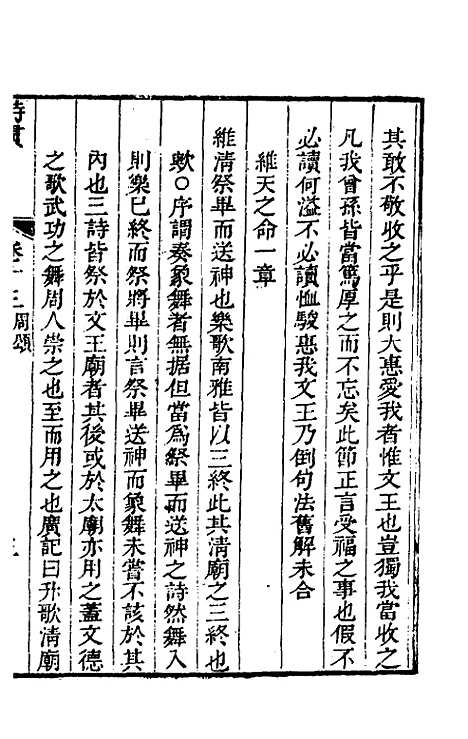 其敢不敬收之乎是則大惠愛我者惟文王也豈獨我當收之
凡我曾孫皆當篤厚之而不忘矣此節正言受福之事也假不
必讀何溢不必讀恤駿惠我文王乃倒句法舊解未合
維天之命一章
維清祭畢而送神也樂歌南雅皆以三終此其清廟之三終也
歟○序謂奏象舞者無据但當為祭畢而送神之詩然舞入
則樂已終而祭將畢則言祭畢送神而象舞未嘗不該於其
內也三詩皆祭於文王廟者其後或於太廟亦用之蓋文德
之歌武功之舞周人崇之也至而用之也廣記曰升歌清廟
詩貫
卷十三 周頌